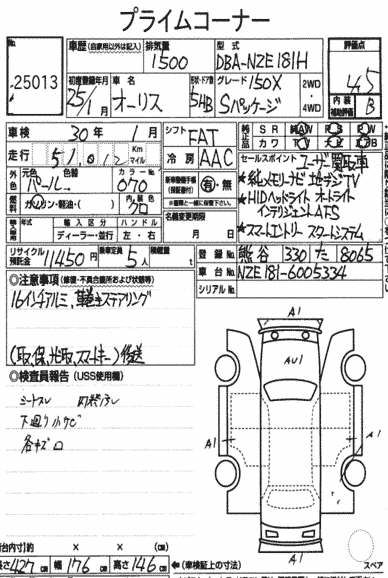 プライムコーナー
No.
25013
車歴 (自家用以外は記入)
排気量
1500
型式
DBA-NZE181H
評価点
4.5
初度登録年月
25/1月
車名
オーリス
形状・ドア数
5HB
グレード 150X
Sパッケージ
2WD
・
4WD
内装
補助評価
B
車検 30年 1月
シフト FAT
SR AW PS PW
カワ
走行 51,012 Km マイル
冷房 AAC
セールスポイント ユーザー買取車
外色 元色 色替 カラーNo.
パール 070
有・無
★純正メモリーナビ 地デジTV
★HIDヘッドライト オートライト
インテリジェントAFS
★スマートエントリー スタートシステム
燃料 ガソリン・軽油・( )
内装色 クロ
名義変更期限
月 日
年式 輸入区分 ハンドル
ディーラー・並行 左・右
リサイクル預託金 11450円
乗車定員 5人
積載量 t
登録No. 熊谷 330 た 8065
車台No. NZE181-6005334
シリアルNo.
◎注意事項 (修復・不具合箇所および状態等)
16インチアルミ、革巻きステアリング
(取、保、光取、スマートキー)後送
◎検査員報告 (USS使用欄)
シートスレ 内装汚レ
下廻り小サビ
各キズ
A1
AU1
A1
A1
A1
(荷台内寸)約 × × (cm)
長さ 427 幅 176 高さ 146 cm
←(車検証上の寸法)
スペア